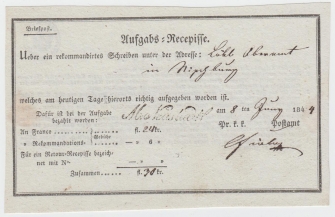 Briefpost.
Aufgabs-Recepisse.
Ueber ein rekommandirtes Schreiben unter der Adresse: Löbl Oberamt
in Nischburg
welches am heutigen Tage hierorts richtig aufgegeben worden ist.
Dafür ist bei der Aufgabe
bezahlt worden:
am 8 ten Juny 184 4
An Franco fl. kr.
Gebühr
Pr. k. k. Postamt
» Rekommandations- — » 6 »
Für ein Retour-Recepisse bezeich-
net mit N° — » — »
Zusammen fl. 30 kr.